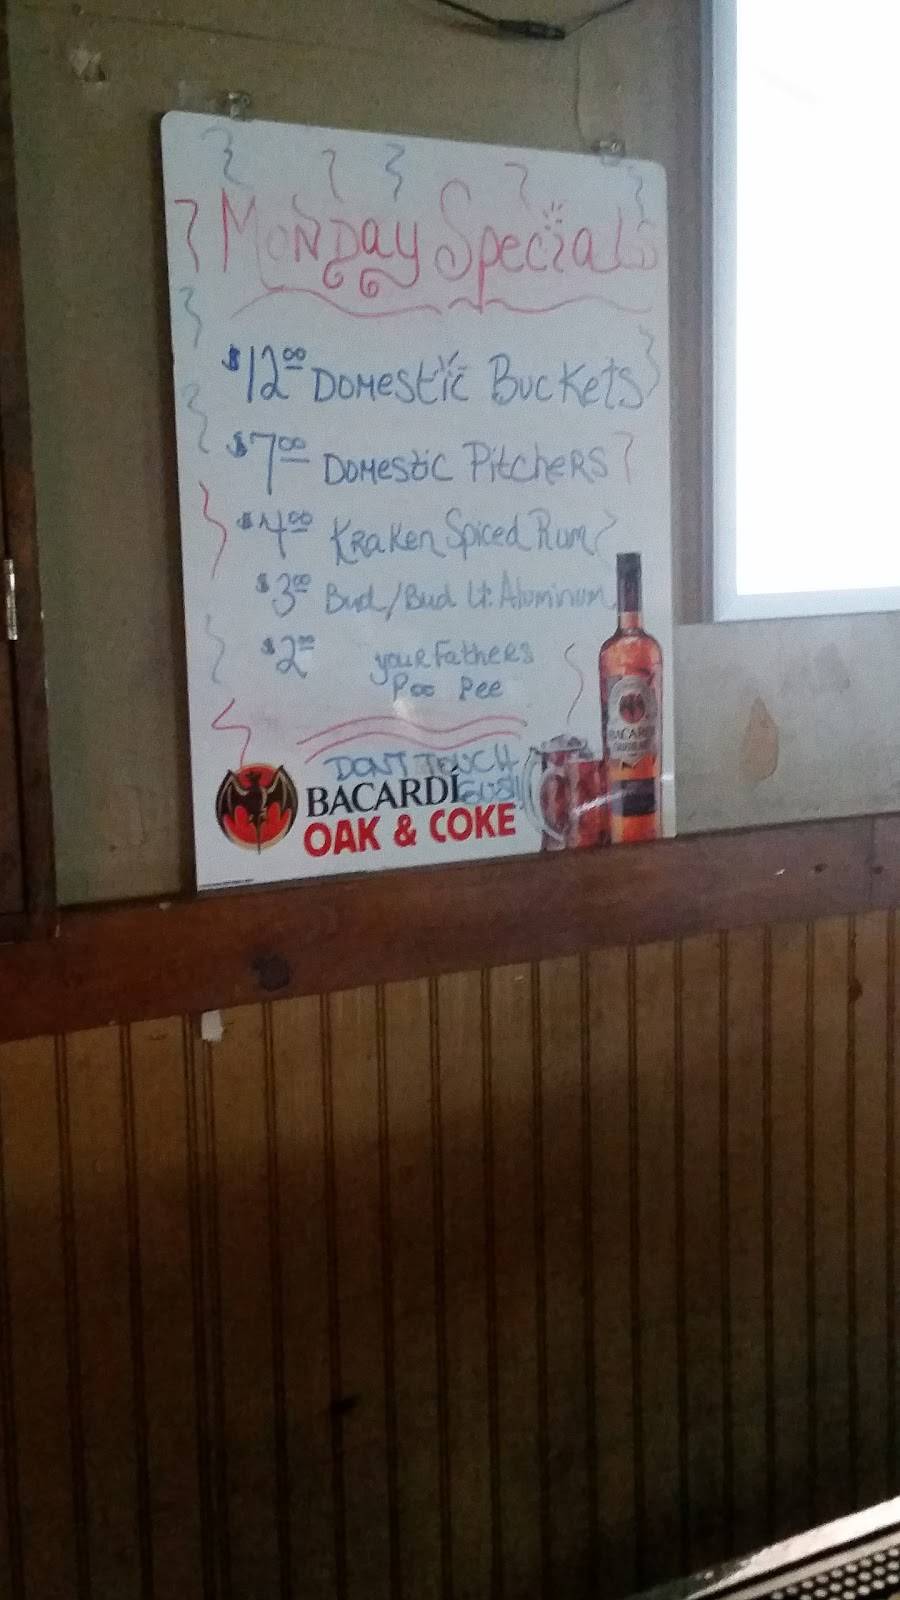 Monday Specials
$12.00 Domestic Buckets
$7.00 Domestic Pitchers
$4.00 Kraken Spiced Rum
$3.00 Bud/Bud Lt. Aluminum
$2.00 your Fathers
Poo Pee
DONT TOUCH
BACARDÍ
OAK & COKE
BACARDÍ